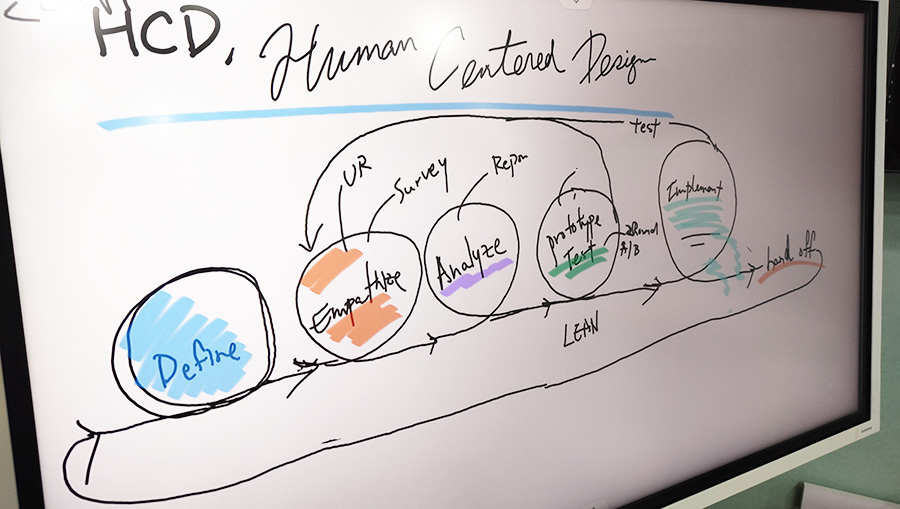 HCD, Human Centered Design
test
UR
Survey
Repon
Define
Empathize
Analyze
prototype
Test
A/B
Implement
hand off
LEAN